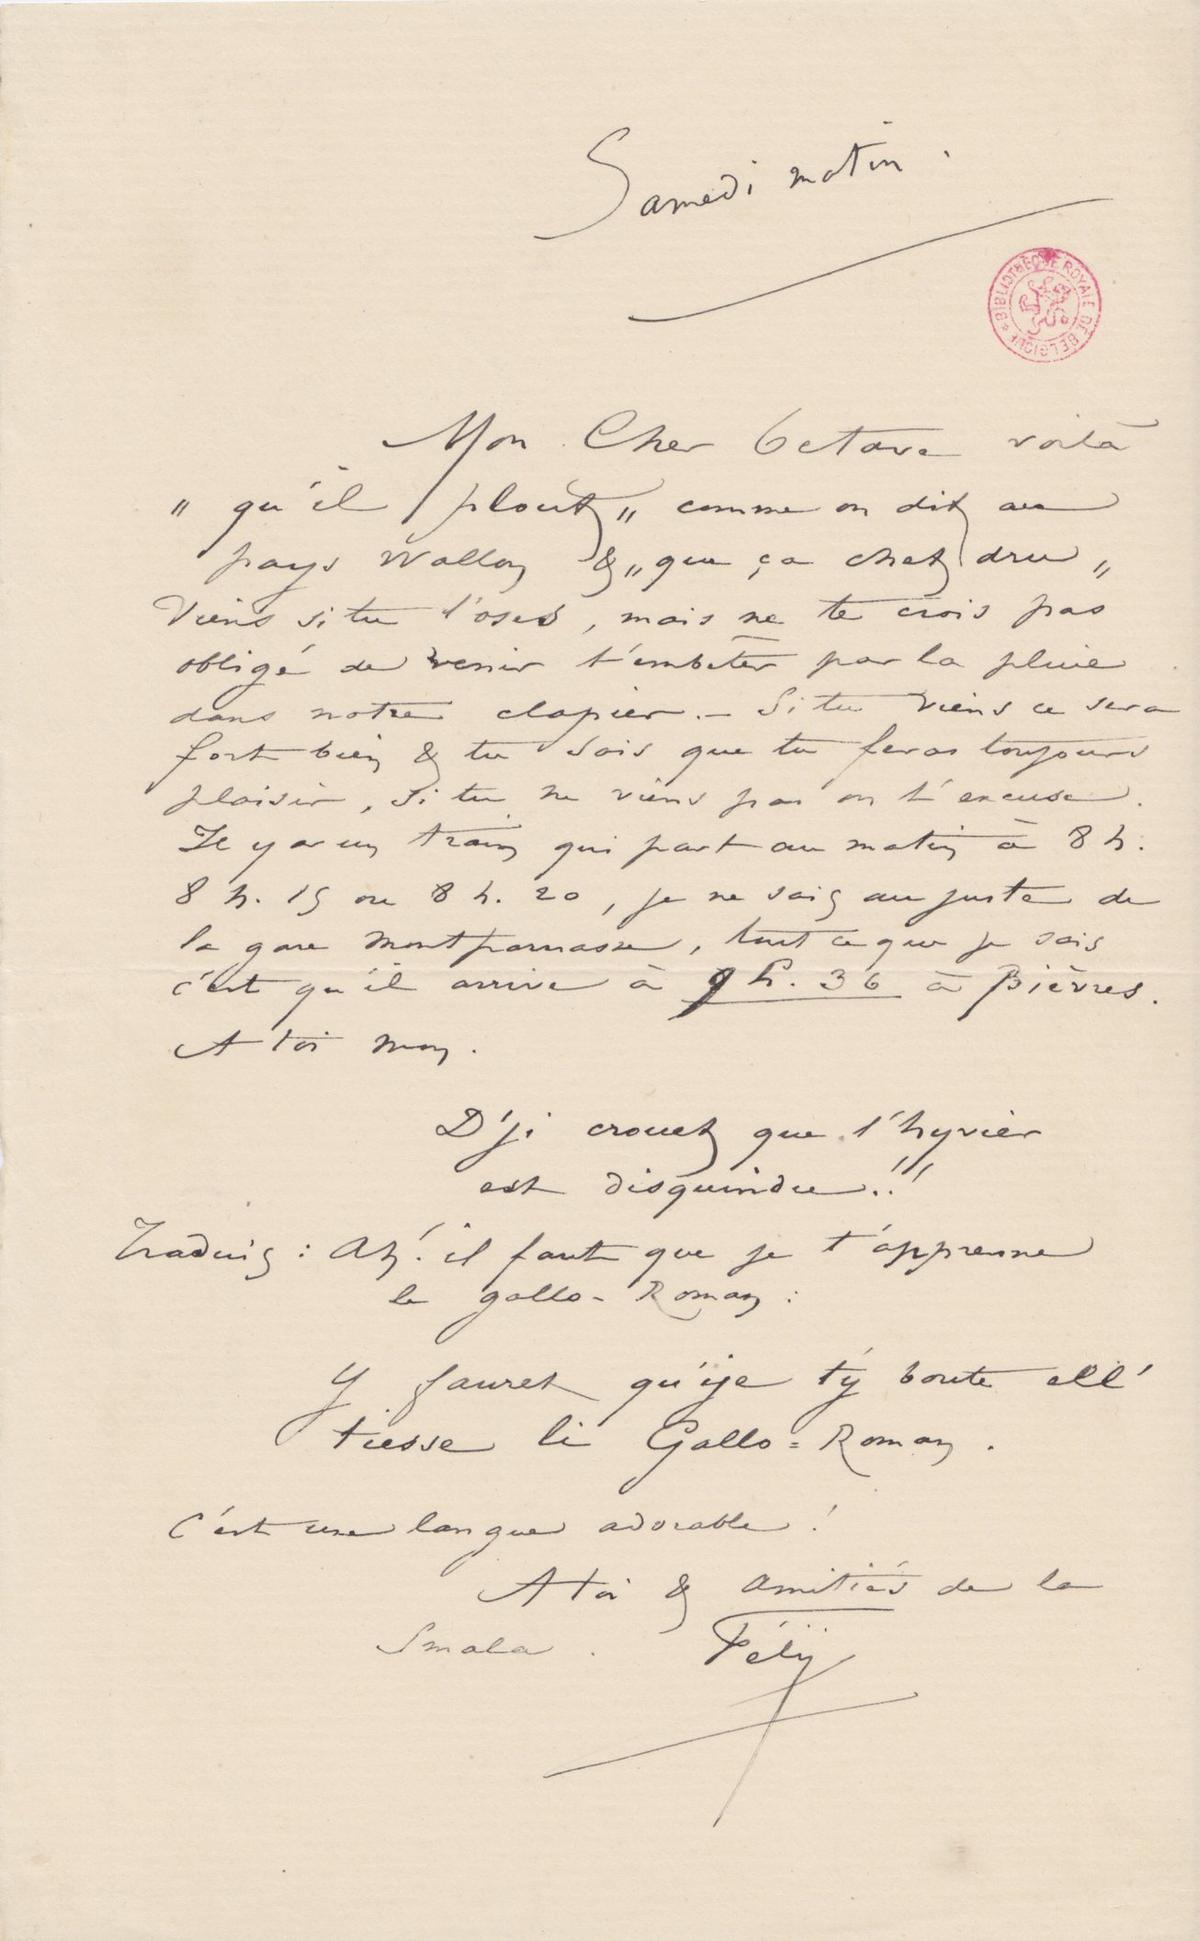 Samedi matin.
BIBLIOTHÈQUE ROYALE DE BELGIQUE
Mon Cher Octave voilà
„ qu'il plout „ comme on dit au
pays Wallon & „ que ça chet dru „
Viens si tu l'oses, mais ne te crois pas
obligé de venir t'embêter par la pluie
dans notre clapier. — Si tu viens ce sera
fort bien & tu sais que tu feras toujours
plaisir, Si tu ne viens pas on t'excuse.
Il y a un train qui part au matin à 8 h.
8 h. 15 ou 8 h. 20, je ne sais au juste de
la gare Montparnasse, tout ce que je sais
c'est qu'il arrive à 9 h. 36 à Bièvres.
A toi mon.
D'ji crouet que l'hyvièr
est disquindu!!
Traduis : Ah! il faut que je t'apprenne
le gallo-Roman :
Y fauret qu'ije t'y boute ell'
tiesse li Gallo=Roman.
C'est une langue adorable!
A toi & amitiés de la
Smala. Fély